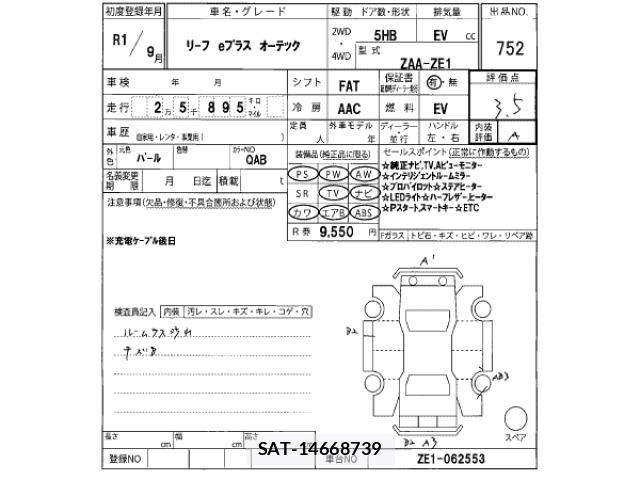 初度登録年月 車名・グレード 駆動 ドア数・形状 排気量 出品NO.
R1/9月 リーフ eプラス オーテック 2WD・4WD 5HB EV cc 752
型式 ZAA-ZE1
車検 年 月 シフト FAT 保証書 有・無 評価点 3.5
走行 2万5千895 キロ・マイル 冷房 AAC 燃料 EV
車歴 自家用・レンタ・事業用( ) 定員 人 外車モデル 年 ディーラー・並行 ハンドル 左・右 内装評価 A
外色 元色 パール 色替 カラーNO QAB 装備品(純正品に限る) セールスポイント(正常に作動するもの)
名義変更期限 月 日迄 積載 t PS PW AW ☆純正ナビ,TV,Aビューモニター
☆インテリジェントルームミラー
注意事項(欠品・修復・不具合箇所および状態) SR TV ナビ ☆プロパイロット☆ステアヒーター
☆LEDライト☆ハーフレザー,ヒーター
カワ エアB ABS ☆Pスタート,スマートキー☆ETC
R券 9,550 円 Fガラス トビ石・キズ・ヒビ・ワレ・リペア跡
※充電ケーブル後日
A1
検査員記入 内装 汚レ・スレ・キズ・キレ・コゲ・穴
ルームウス汚れ
キズ有
B2
AB3
B2 A3
スペア
長さ cm 幅 cm 高さ cm
SAT-14668739
登録NO 車台NO ZE1-062553